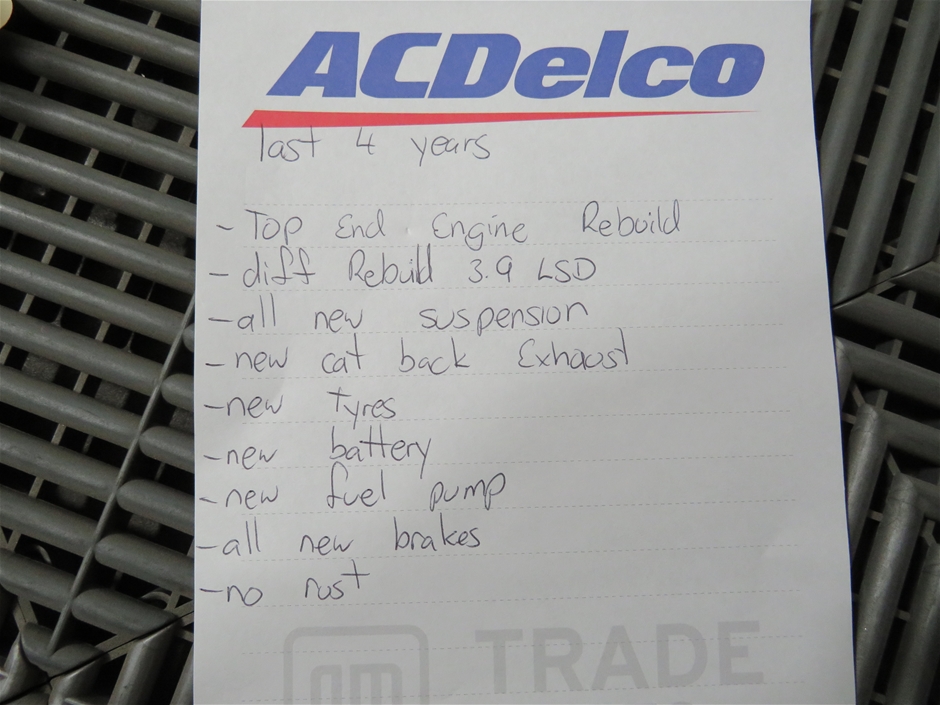 ACDelco
last 4 years
- Top End Engine Rebuild
- diff Rebuild 3.9 LSD
- all new suspension
- new cat back Exhaust
- new tyres
- new battery
- new fuel pump
- all new brakes
- no rust
gm TRADE